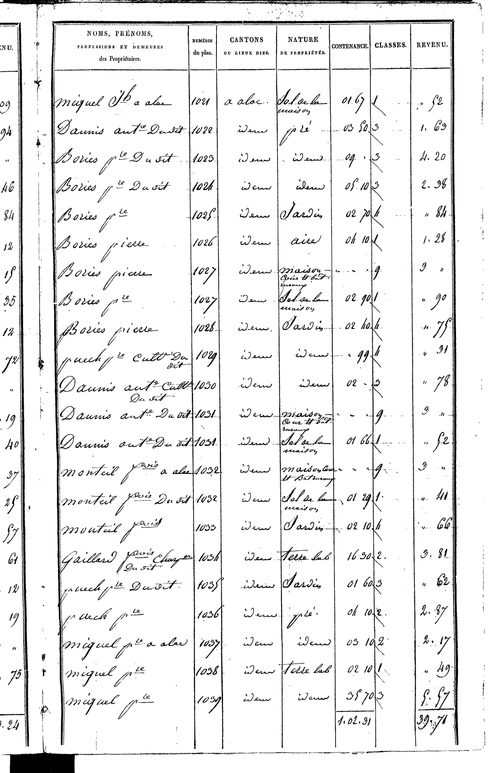 NU. NOMS, PRÉNOMS, NUMÉROS CANTONS NATURE CONTENANCE. CLASSES. REVENU.
PROFESSIONS ET DEMEURES du plan. OU LIEUX DITS. DE PROPRIÉTÉS.
des Propriétaires.
09 miquel Jh a alac 1021 a alac Sol de la maison 01 67 1 " 52
94 Daunis ante Du dit 1022 idem pré 03 50 3 1. 63
" Bories pre Du dit 1023 idem idem 09 . 3 4. 20
46 Bories pre Du dit 1024 idem idem 05 10 3 2. 38
84 Bories pre 1025 idem Jardin 02 70 4 " 84
12 Bories pierre 1026 idem aire 04 10 1 1. 28
15 Bories pierre 1027 idem maison Cour et bat- - - - 9 3 "
35 Bories pre 1027 idem Sol de la maison 02 90 1 " 90
12 Bories pierre 1028 idem Jardin 02 40 4 " 75
72 puech pre Cultr Du dit 1029 idem idem " 99 4 " 31
" Daunis ante Cultr Du dit 1030 idem idem 02 - 3 " 78
19 Daunis ante Du dit 1031 idem maison Cour et bat- 9 3 "
40 Daunis ante Du dit 1031 idem Sol de la maison 01 66 1 " 52
37 monteil frois a alac 1032 idem maison Cour et 9 3 "
25 monteil frois Du dit 1032 idem Sol de la maison 01 29 1 " 41
57 monteil frois 1033 idem Jardin 02 10 4 " 66
61 Gaillard frois Du dit 1034 idem terre lab 16 30 2. 3. 81
12 puech pre Du dit 1035 idem Jardin 01 60 3 " 62
19 puech pre 1036 idem pré 04 10 2 2. 87
miquel pre a alac 1037 idem idem 03 10 2 2. 17
75 miquel pre 1038 idem terre lab 02 10 1 " 49
miquel pre 1039 idem idem 35 70 3 5. 57
.24 1.02.31 39.71